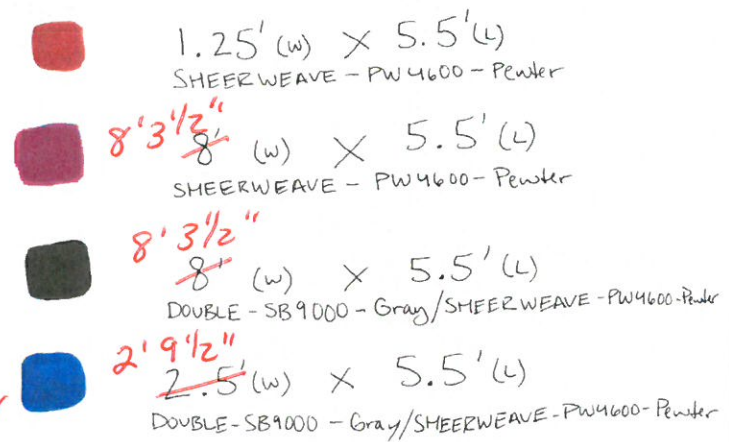 1.25' (W) X 5.5' (L)
SHEERWEAVE - PW4600 - Pewter
8' 3 1/2"
8' (W) X 5.5' (L)
SHEERWEAVE - PW4600 - Pewter
8' 3 1/2"
8' (W) X 5.5' (L)
DOUBLE - SB9000 - Gray/SHEERWEAVE - PW4600 - Pewter
2' 9 1/2"
2.5' (W) X 5.5' (L)
DOUBLE - SB9000 - Gray/SHEERWEAVE - PW4600 - Pewter